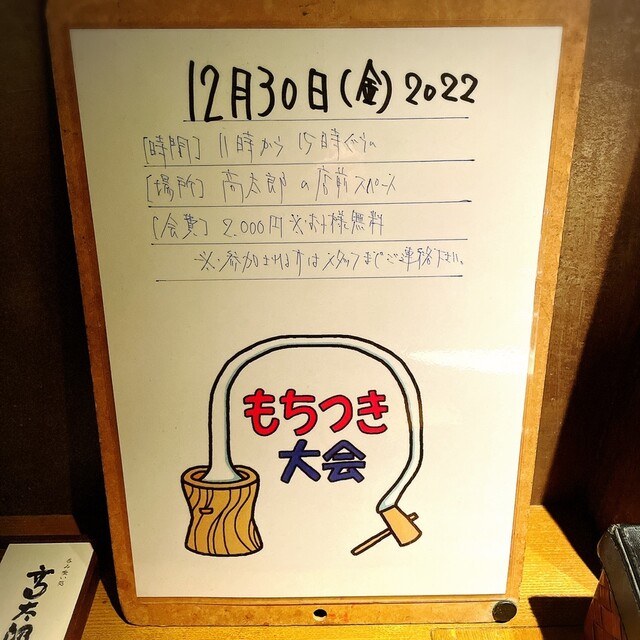 12月30日(金)2022
[時間] 11時から15時ぐらい
[場所] 高太郎の店前スペース
[会費] 2.000円 ※お子様無料
※参加される方はスタッフまでご連絡下さい。
もちつき
大会
高太郎